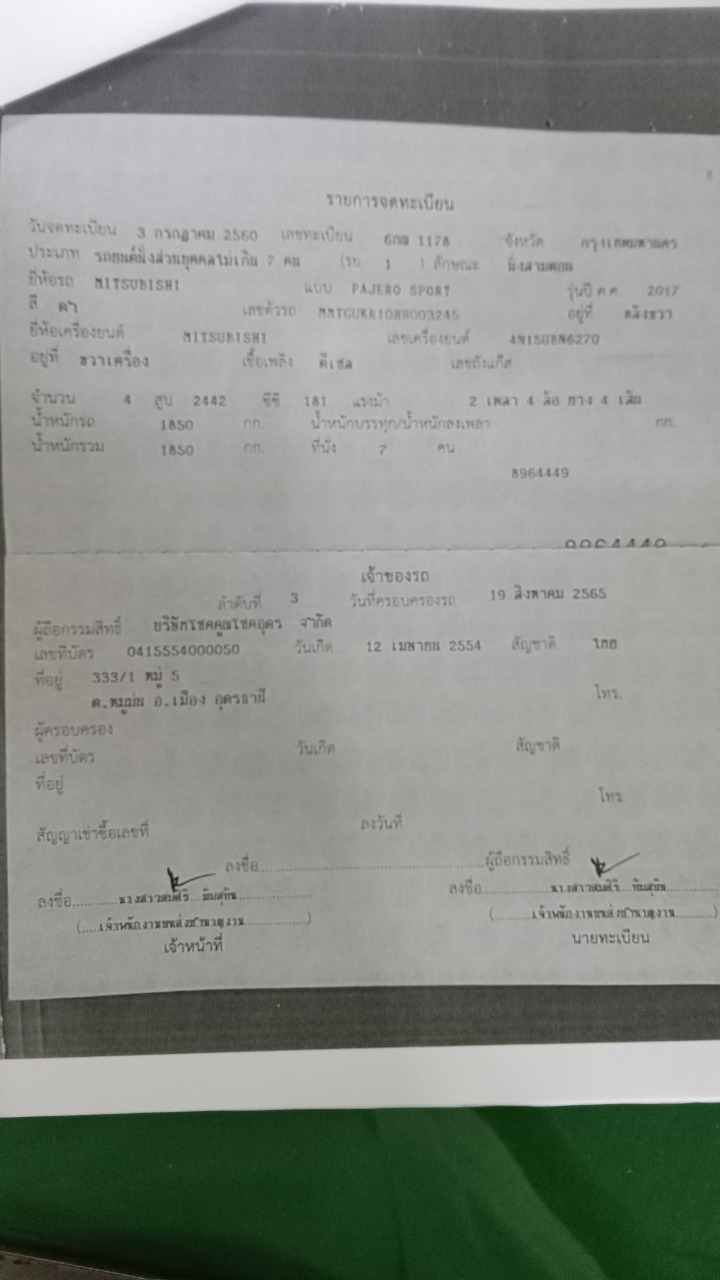 รายการจดทะเบียน
วันจดทะเบียน 3 กรกฎาคม 2560 เลขทะเบียน 1178 จังหวัด กรุงเทพมหานคร
ประเภท รถยนต์นั่งส่วนบุคคลไม่เกิน 7 คน (รย. 1 ) ลักษณะ นั่งสามตอน
ยี่ห้อรถ MITSUBISHI แบบ PAJERO SPORT รุ่นปี ค.ศ. 2017
สี ดำ เลขตัวรถ อยู่ที่ หลังขวา
ยี่ห้อเครื่องยนต์ MITSUBISHI เลขเครื่องยนต์
อยู่ที่ ขวาเครื่อง เชื้อเพลิง ดีเซล เลขถังแก๊ส
จำนวน 4 สูบ 2442 ซีซี 181 แรงม้า 2 เพลา 4 ล้อ ยาง 4 เส้น
น้ำหนักรถ 1850 กก. น้ำหนักบรรทุก/น้ำหนักลงเพลา กก.
น้ำหนักรวม 1850 กก. ที่นั่ง 7 คน
8964449
เจ้าของรถ
ลำดับที่ 3 วันที่ครอบครองรถ 19 สิงหาคม 2565
ผู้ถือกรรมสิทธิ์ บริษัทโชคคูณโชคอุดร จำกัด
เลขที่บัตร 0415554000050 วันเกิด 12 เมษายน 2554 สัญชาติ ไทย
ที่อยู่ 333/1 หมู่ 5
ต.หมูม่น อ.เมือง อุดรธานี โทร.
ผู้ครอบครอง
เลขที่บัตร วันเกิด สัญชาติ
ที่อยู่
โทร.
สัญญาเช่าซื้อเลขที่ ลงวันที่
ลงชื่อ ผู้ถือกรรมสิทธิ์
ลงชื่อ นางสาวสมศิริ ลงชื่อ นางสาวสมศิริ
(เจ้าพนักงานขนส่งชำนาญงาน) (เจ้าพนักงานขนส่งชำนาญงาน)
เจ้าหน้าที่ นายทะเบียน